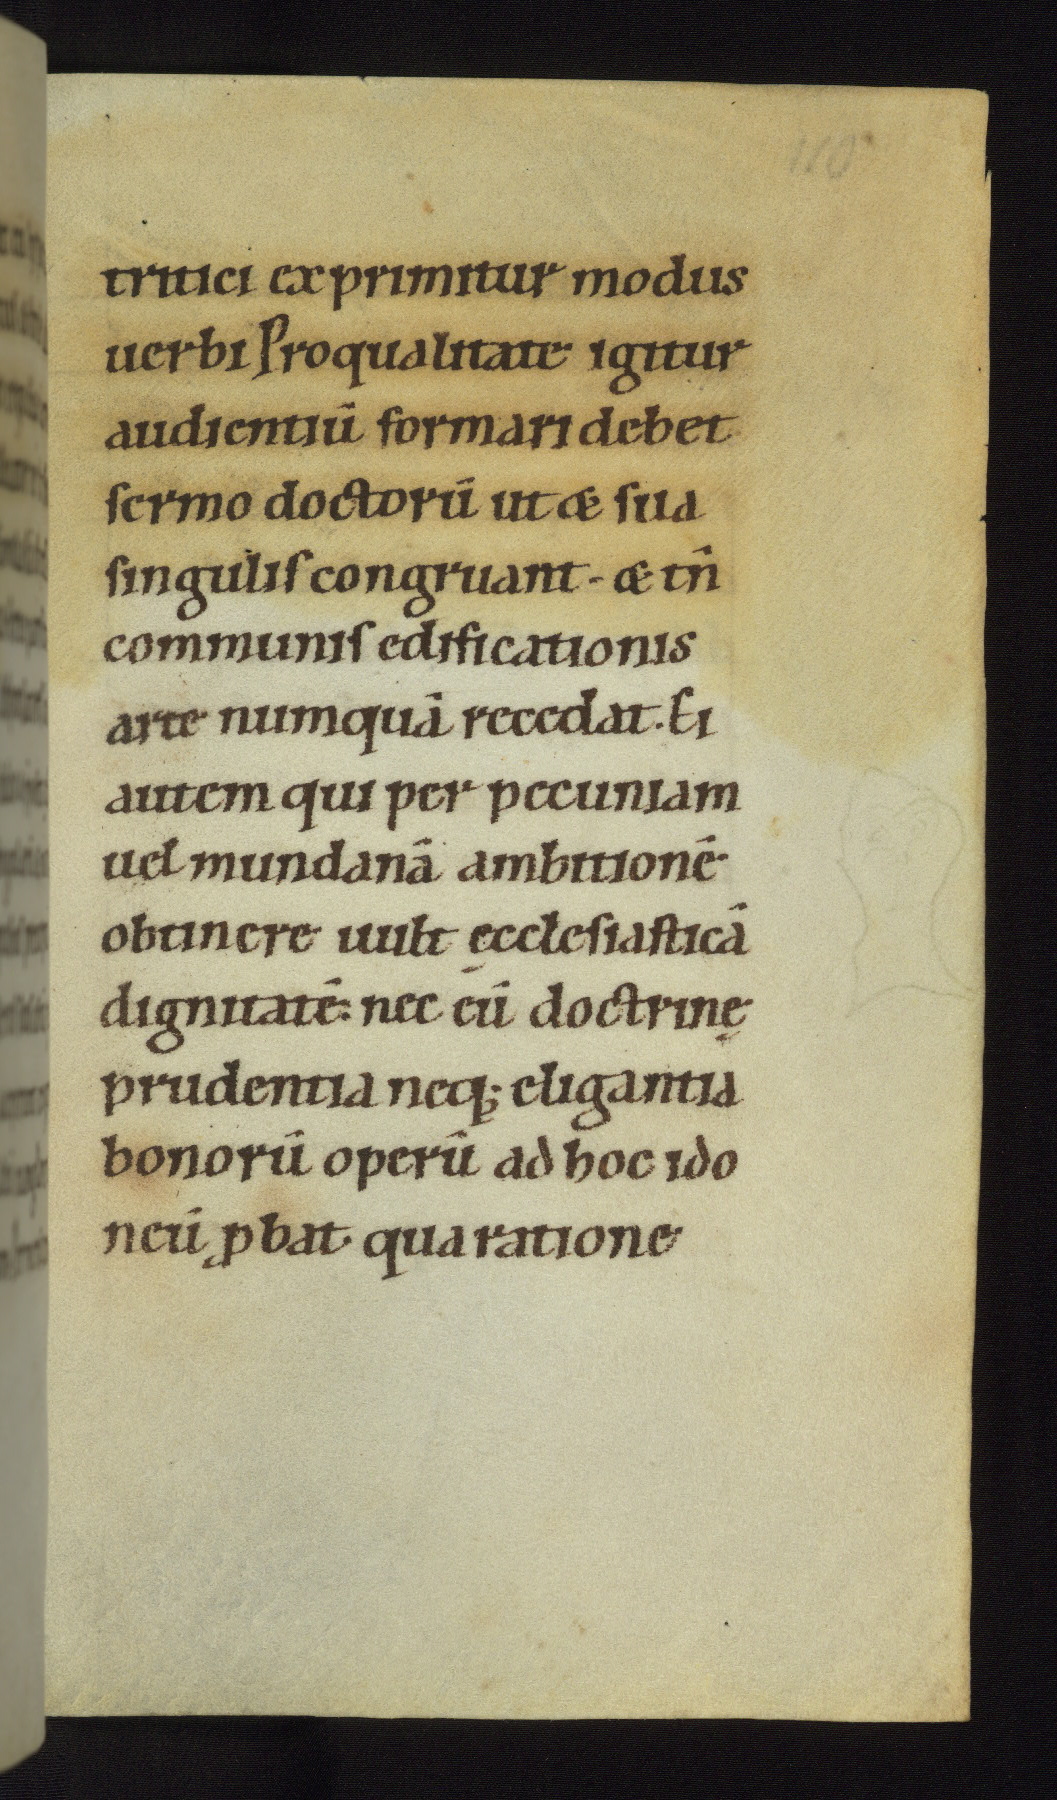 tritici exprimitur modus
uerbi Proqualitate igitur
audientiū formari debet
sermo doctorū ut æ sua
singulis congruant - æ tn̄
communis edificationis
arte numquā recedat. Ei
autem qui per pecuniam
uel mundanā ambitionē
obtinere uult ęcclesiasticā
dignitatē: nec eū doctrinę
prudentia neq; eligantia
bonorū operū ad hoc ido
neū ꝓbat. qua ratione